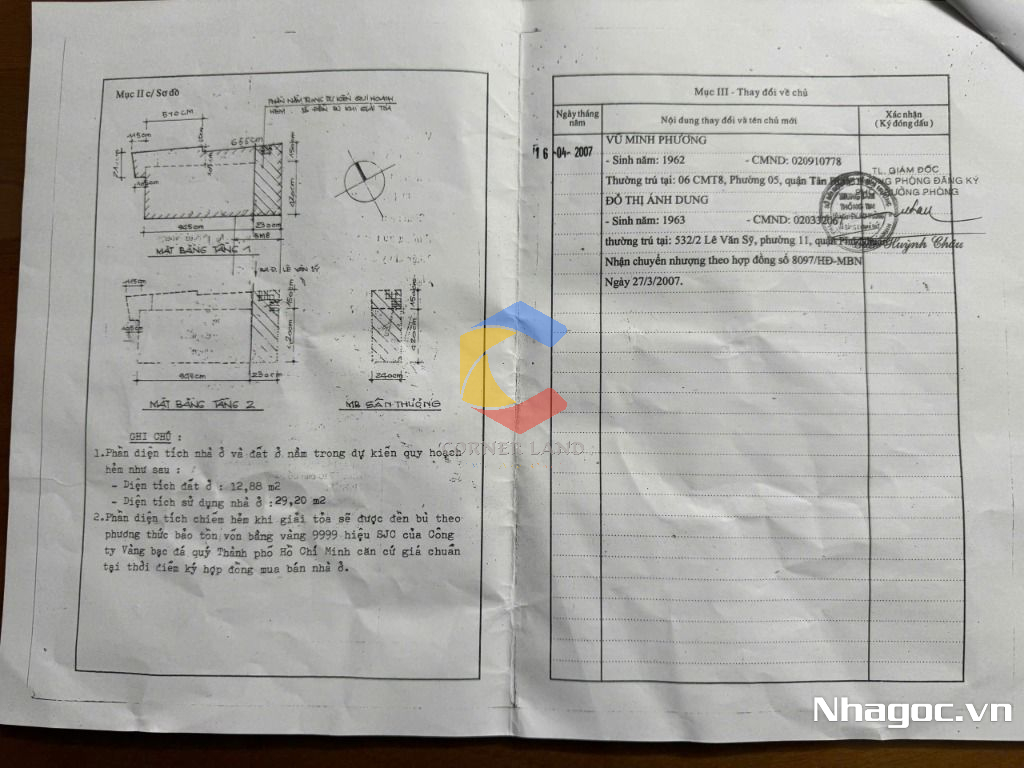 Mục II c/ Sơ đồ
PHẦN NẰM TRONG DỰ KIẾN QUI HOẠCH
HẺM
KHI GIẢI TỎA
540cm
115cm
655cm
150cm
420cm
230cm
MẶT BẰNG TẦNG 1
LÊ VĂN SỸ
115cm
150cm
420cm
230cm
MẶT BẰNG TẦNG 2
150cm
420cm
240cm
MB SÂN THƯỢNG
GHI CHÚ :
1.Phần diện tích nhà ở và đất ở nằm trong dự kiến quy hoạch
hẻm như sau :
- Diện tích đất ở : 12,88 m2
- Diện tích sử dụng nhà ở :29,20 m2
2.Phần diện tích chiếm hẻm khi giải tỏa sẽ được đền bù theo
phương thức bảo tồn vốn bằng vàng 9999 hiệu SJC của Công
ty Vàng bạc đá quý Thành phố Hồ Chí Minh căn cứ giá chuẩn
tại thời điểm ký hợp đồng mua bán nhà ở.
Mục III - Thay đổi về chủ
Ngày tháng năm
Nội dung thay đổi và tên chủ mới
Xác nhận
( Ký đóng dấu )
16 -04- 2007
VŨ MINH PHƯƠNG
- Sinh năm: 1962 - CMND: 020910778
Thường trú tại: 06 CMT8, Phường 05, quận Tân
ĐỖ THỊ ÁNH DUNG
- Sinh năm: 1963 - CMND:
thường trú tại: 532/2 Lê Văn Sỹ, phường 11, quận
Nhận chuyển nhượng theo hợp đồng số 8097/HĐ-MBN
Ngày 27/3/2007.
TL. GIÁM ĐỐC
PHÒNG ĐĂNG KÝ
TRƯỞNG PHÒNG
Huỳnh Châu
CORNER LAND
Nhagoc.vn